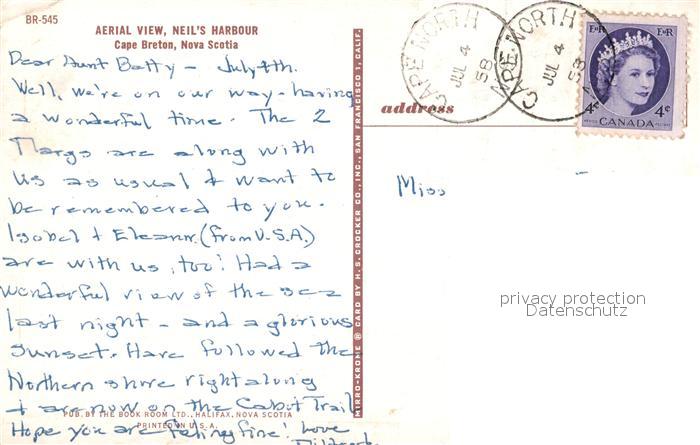 BR-545
AERIAL VIEW, NEIL'S HARBOUR
Cape Breton, Nova Scotia
Dear Aunt Betty - July 4th.
Well, we're on our way - having
a wonderful time. The 2
Margs are along with
us as usual & want to
be remembered to you.
Isobel & Eleanor (from U.S.A.)
are with us, too! Had a
wonderful view of the sea
last night - and a glorious
sunset. Have followed the
Northern shore right along
& are now on the Cabot Trail
Hope you are feeling fine! Love
PUB. BY THE BOOK ROOM LTD., HALIFAX, NOVA SCOTIA
PRINTED IN U.S.A.
MIRRO-KROME ® CARD BY H. S. CROCKER CO., INC., SAN FRANCISCO 1, CALIF.
CAPE NORTH
JUL 4
58
CAPE NORTH
JUL 4
58
EIIR EIIR
4¢ 4¢
CANADA
address
Miss
privacy protection
Datenschutz